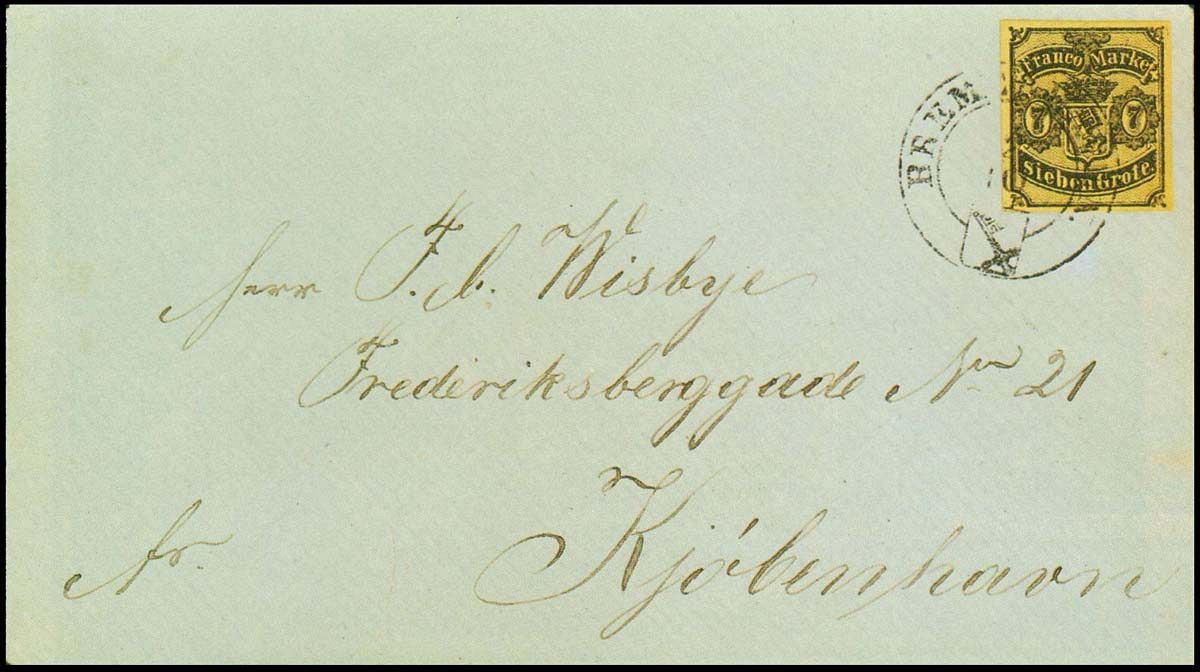 Franco Marke
7 7
Sieben Grote.
BREM
Herr F. C. Wisbye
Frederiksberggade No 21
Kjöbenhavn
fr.